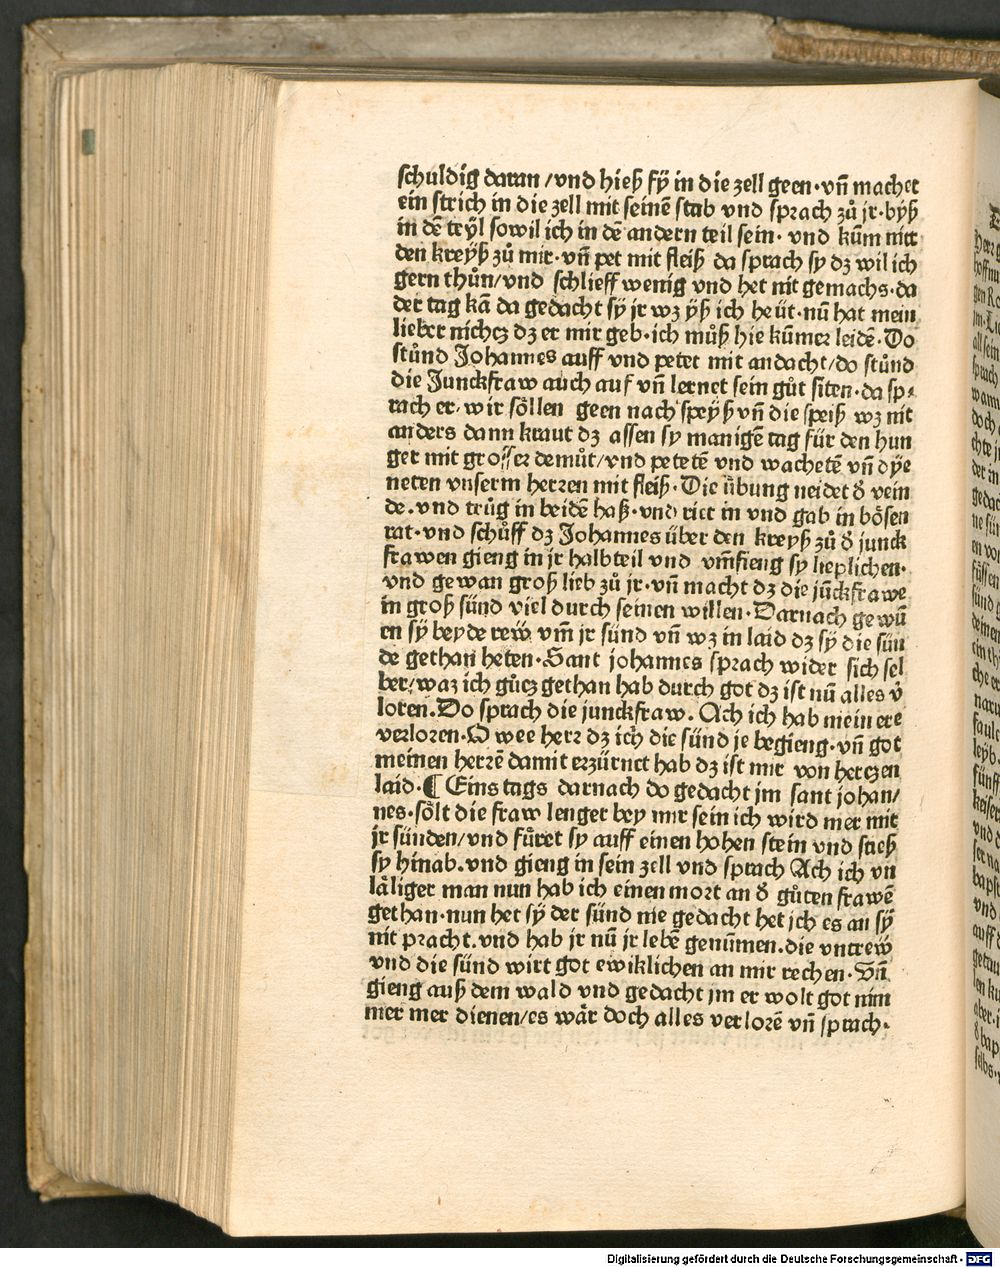 schuldig daran / vnd hieß sÿ in die zell geen · vñ machet
ein strich in die zell mit seinē stab vnd sprach zů jr · bÿß
in dē teÿl so wil ich in dē andern teil sein · vnd kům nitt
den kreÿß zů mir · vñ pet mit fleiß da sprach sy dz wil ich
gern thůn / vnd schlieff wenig vnd het nit gemachs · da
der tag kā da gedacht sÿ jr wz ÿß ich heüt · nū hat mein
lieber nichcz dz er mir geb · ich můß hie kūmer leidē · Do
stůnd Johannes auff vnd petet mit andacht / do stůnd
die Junckfraw auch auf vñ lernet sein gůt siten · da sp⸗
rach er / wir söllen geen nach speÿß vñ die speiß wz nit
anders dann kraut dz assen sy manigē tag für den hun
ger mit grosser demůt / vnd petetē vnd wachetē vñ dÿe
neten vnserm herren mit fleiß · Die übung neidet d̕ vein
de · vnd trůg in beidē haß · vnd riet in vnd gab in bösen
rat · vnd schůff dz Johannes über den kreyß zů d̕ junck
frawen gieng in jr halbteil vnd vm̄fieng sy lieplichen ·
vnd gewan groß lieb zů jr · vñ macht dz die jūckfrawe
in groß sünd viel durch seinen willen · Darnach gewū
en sÿ beyde reẅ vm̄ jr sünd vñ wz in laid dz sÿ die sün
de gethan heten · Sant johannes sprach wider sich sel
ber / waz ich gůcz gethan hab durch got dz ist nū alles v̕
loren. Do sprach die junckfraw. Ach ich hab mein ere
verloren · O wee herr dz ich die sünd je begieng · vñ got
meinen herrē damit erzürnet hab dz ist mir von herczen
laid · ¶ Eins tags darnach do gedacht jm sant johan/
nes · sölt die fraw lenger bey mir sein ich wird mer mit
jr sünden / vnd füret sy auff einen hohen stein vnd stieß
sy hinab · vnd gieng in sein zell vnd sprach Ach ich vn
säliger man nun hab ich einen mort an d̕ gůten frawē
gethan · nun het sÿ der sünd nie gedacht het ich es an sÿ
nit pracht · vnd hab jr nū jr lebē genūmen · die vntreẅ
vnd die sünd wirt got ewiklichen an mir rechen · Vñ
gieng auß dem wald vnd gedacht jm er wolt got nim
mer mer dienen / es wär doch alles verlorē vñ sprach ·
Digitalisierung gefördert durch die Deutsche Forschungsgemeinschaft - DFG